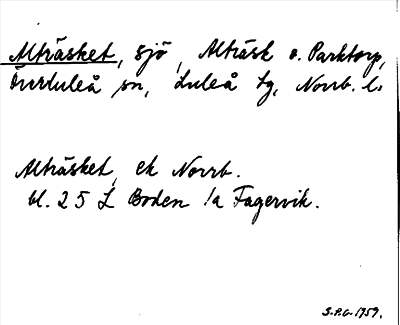 Alträsket, sjö, Alträsk o. Parktorp,
Överluleå sn, Luleå tg, Norrb. l.
Alträsket, ek Norrb.
bl. 25 L Boden 1a Fagervik.
S.P.G. 1759.